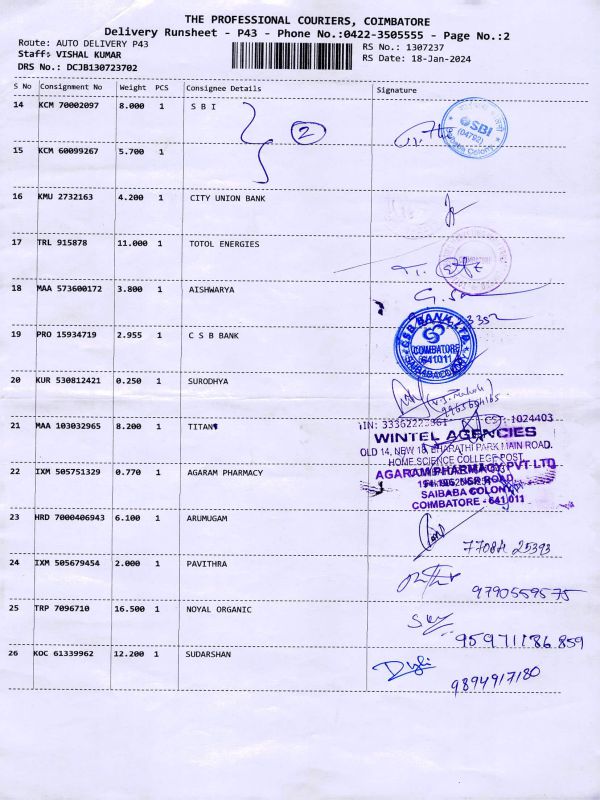 THE PROFESSIONAL COURIERS, COIMBATORE
Delivery Runsheet - P43 - Phone No.:0422-3505555 - Page No.:2
Route: AUTO DELIVERY P43
RS No.: 1307237
Staff: VISHAL KUMAR
RS Date: 18-Jan-2024
DRS No.: DCJB130723702
S No Consignment No Weight PCS Consignee Details Signature
14 KCM 70002097 8.000 1 S B I
2
SBI
(04792)
15 KCM 60099267 5.700 1
16 KMU 2732163 4.200 1 CITY UNION BANK
17 TRL 915878 11.000 1 TOTOL ENERGIES
18 MAA 573600172 3.800 1 AISHWARYA
19 PRO 15934719 2.955 1 C S B BANK
CSB BANK LTD.
COIMBATORE
641 011
SAIBABA COLONY
20 KUR 530812421 0.250 1 SURODHYA
21 MAA 103032965 8.200 1 TITAN
CST: 1024403
WINTEL AGENCIES
OLD 14, NEW 18, BHARATHI PARK MAIN ROAD.
HOME SCIENCE COLLEGE POST
22 IXM 505751329 0.770 1 AGARAM PHARMACY
AGARAM PHARMACY PVT LTD
NSR ROAD,
SAIBABA COLONY
COIMBATORE - 641 011
23 HRD 7000406943 6.100 1 ARUMUGAM
24 IXM 505679454 2.000 1 PAVITHRA
9790559575
25 TRP 7096710 16.500 1 NOYAL ORGANIC
26 KOC 61339962 12.200 1 SUDARSHAN
9894917180